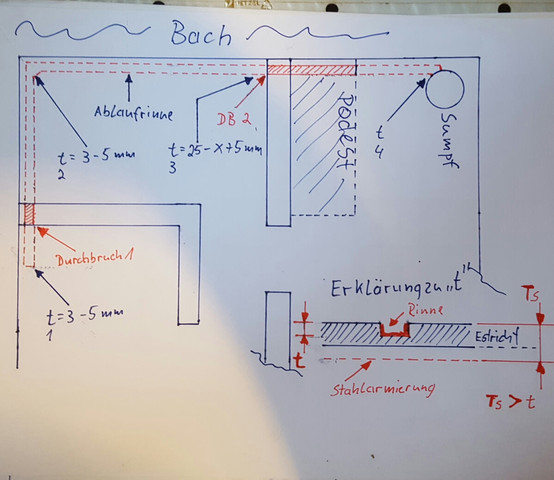 Bach
Ablaufrinne
DB 2
Podest
Sumpf
t = 3-5 mm
2
t = 25-x+5 mm
3
t
4
Durchbruch 1
t = 3-5 mm
1
Erklärung zu "t"
Rinne
Ts
Estrich
t
Stahlarmierung
Ts > t